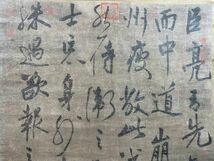 臣亮言先
而中道崩
州疲敝此
然侍衛之
士忘身
殊遇欲報之